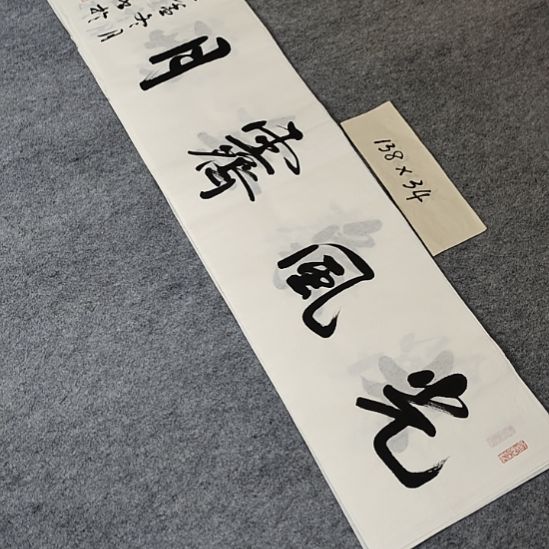 光風霽月
138×34